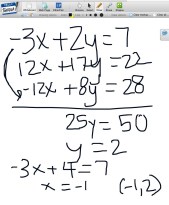 -3x+2y=7
12x+17y=22
-12x+8y=28
25y=50
y=2
-3x+4=7
x=-1 (-1,2)